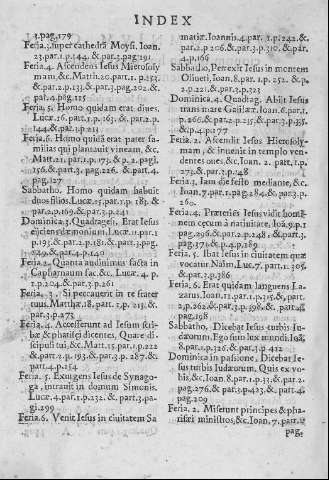 INDEX
3.pag.179
Feria.3. super cathedrã Moysi. Ioan.
23.par.1.p.144. & par.2.pag.191
Feria.4. Ascendens Iesus Hierosoly
mam, &c. Matth.20.part.1.p.153.
&.par.2.p.133.&.par.3.pag.202.&.
par.4.pag.125
Feria.5. Homo quidam erat diues.
Lucæ.16.part.1.p.163.&.par.2.p.
144.&.par.3.p.213
Feria.6. Homo quidã erat pater fa-
milias qui plantauit vineam, &c.
Matt.21.par.1.p.173.&.p.2.pagi.
156.& part.3.pag.226.&.part.4.
pag.127
Sabbatho. Homo quidam habuit
duos filios. Lucæ.15.par.1.p.183.&.
par.2.p.169.&.par.3.p.241
Dominica.3. Quadrages. Erat Iesus
eijciens dæmonium. Lucæ.11.par.1
p.193.&.par.2.p.181.&.part.3.pag.
249.&.par.4.p.140
Feria.2. Quanta audiuimus facta in
Capharnaum fac &c. Lucæ.4.p.
1.p.204.&.par.3.p.261
Feria.3. Si peccauerit in te frater
tuus. Matthæ.18.part.1.p.213.&.
par.3.p.273
Feria.4. Accesserunt ad Iesum scri-
bæ & pharisei dicentes, Quare di-
scipuli tui, &c. Matt.15.par.1.p.222
&.part.2.p.193.&.par.3.p.287.&.
part.4.p.154
Feria.5. Exurgens Iesus de Synago-
ga, intrauit in domum Simonis.
Lucæ.4.par.1.p.232.&.part.3.pa-
gi.299
Feria.6. Venit Iesus in ciuitatem Sa
mariæ. Ioannis.4.par.1.p.242.&.
par.2.p.206.&.par.3.p.310.&.par.
4.p.166
Sabbatho, Perrexit Iesus in montem
Oliueti, Ioan.8.par.1.p.252.&.p.
2.p.221.&.par.3.p.323
Dominica.4. Quadrag. Abijt Iesus
trans mare Galilææ. Ioan.6.par.1.
p.266.&.par.2.p.235.&.par.3.p.335.
&.p.4.p.177
Feria.2. Ascendit Iesus Hierosoly-
mam, & inuenit in templo ven-
dentes oues &c. Ioan.2.part.1.p.
273.&.par.2.p.248
Feria.3. Iam die festo mediante, &c.
Ioan.7.par.1.pag.284.&.par.3.p.
360.
Feria.4. Præteriẽs Iesus vidit homi-
nem cęcum à natiuitate, Ioã.9.p.1
pag.296.&.par.2.p.248.&.part.3.
pag.376.&.p.4.p.189
Feria.5. Ibat Iesus in ciuitatem quæ
vocatur Naim. Luc.7.part.1.305.
&.par.3.p.386
Feria.6. Erat quidam languens La-
zarus. Ioan.11.par.1.p.315.&.part.
2.p.262.&.par.3.p.398.&.par.4.
pag.198
Sabbatho. Dicebat Iesus turbis Iu-
dæorum. Ego sum lux mundi. Ioã.
8.par.1.p.326.&.par.3.p.412
Dominica in passione. Dicebat Ie-
sus turbis Iudæorum, Quis ex vo-
bis, &c. Ioan.8.par.1.p.33.&.par.2.
pag.276.&.par.3.p.423.&.part.4.
pag.209
Feria.2. Miserunt principes & pha-
risæi ministros, &c. Ioan.7.part.1.
pag.